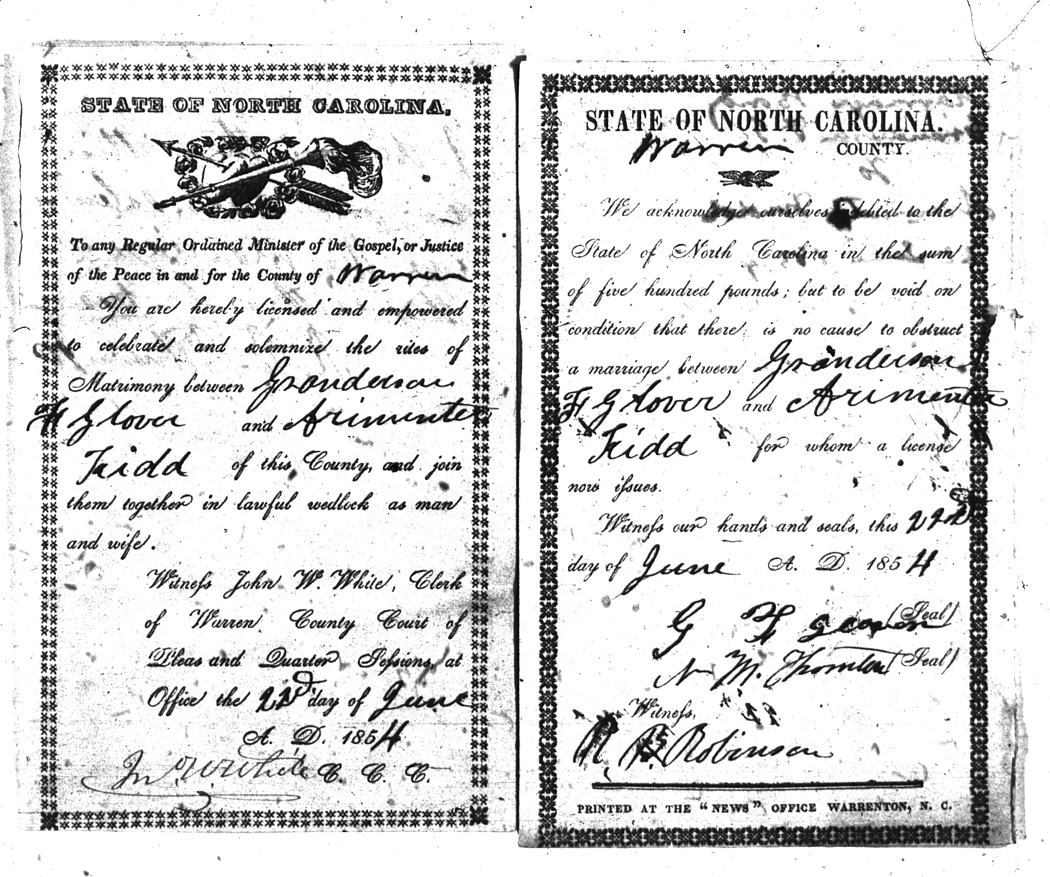 STATE OF NORTH CAROLINA.
To any Regular Ordained Minister of the Gospel, or Justice
of the Peace in and for the County of Warren
You are hereby licensed and empowered
to celebrate and solemnize the rites of
Matrimony between Granderson
F Glover and Arimenter
Kidd of this County, and join
them together in lawful wedlock as man
and wife.
Witness John W. White, Clerk
of Warren County Court of
Pleas and Quarter Sessions, at
Office the 22d day of June
A. D. 1854
Jno W White C. C. C.
STATE OF NORTH CAROLINA.
Warren COUNTY.
We acknowledge ourselves indebted to the
State of North Carolina in the sum
of five hundred pounds; but to be void on
condition that there is no cause to obstruct
a marriage between Granderson
F Glover and Arimenter
Kidd for whom a license
now issues.
Witness our hands and seals, this 22nd
day of June A. D. 1854
G F Glover (Seal)
N M. Thornton (Seal)
Witness,
R. B. Robinson
PRINTED AT THE "NEWS" OFFICE WARRENTON, N. C.